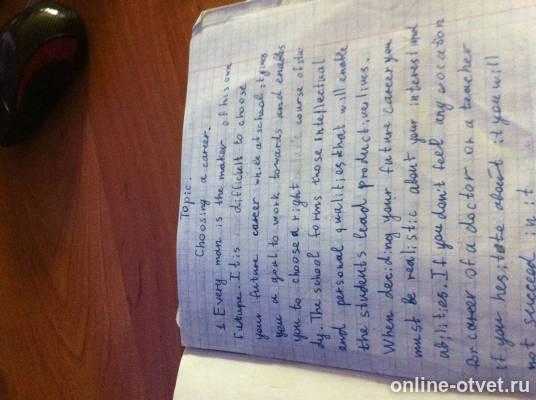 Topic.
Choosing a career.
1. Every man is the maker of his own
future. It is difficult to choose
your future career while at school. It gives
you a goal to work towards and enables
you to choose a right course of stu
dy. The school forms those intellectual
and personal qualities that will enable
the students lead productive lives.
When deciding your future career you
must be realistic about your interest and
abilities. If you don't feel any vocation
for career of a doctor or a teacher
if you hesitate about it you will
not succeed in it
online-otvet.ru